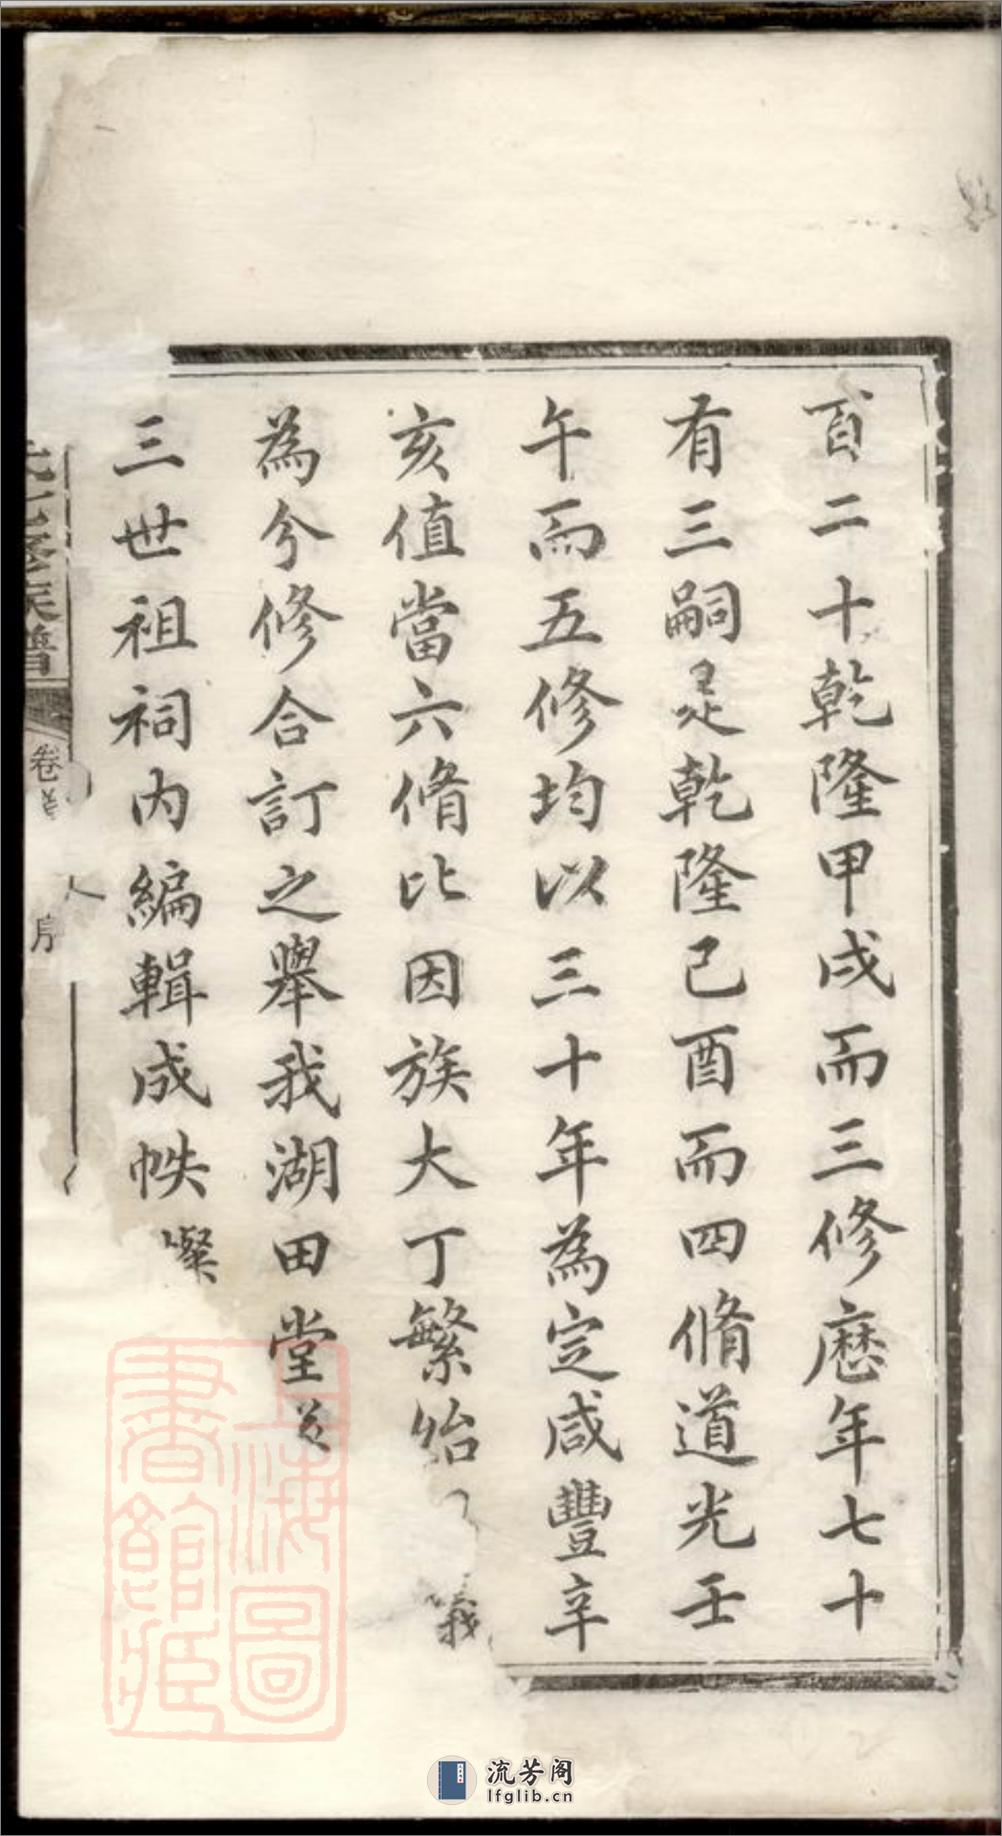 百二十乾隆甲戌而三修歷年七十
有三嗣是乾隆己酉而四脩道光壬
午而五修均以三十年為定咸豐辛
亥值當六脩比因族大丁繁始
義
為分修合訂之舉我湖田堂爰
三世祖祠內編輯成帙燦
修族譜
卷首
序
上海圖
書館藏
流芳阁
lfglib.cn